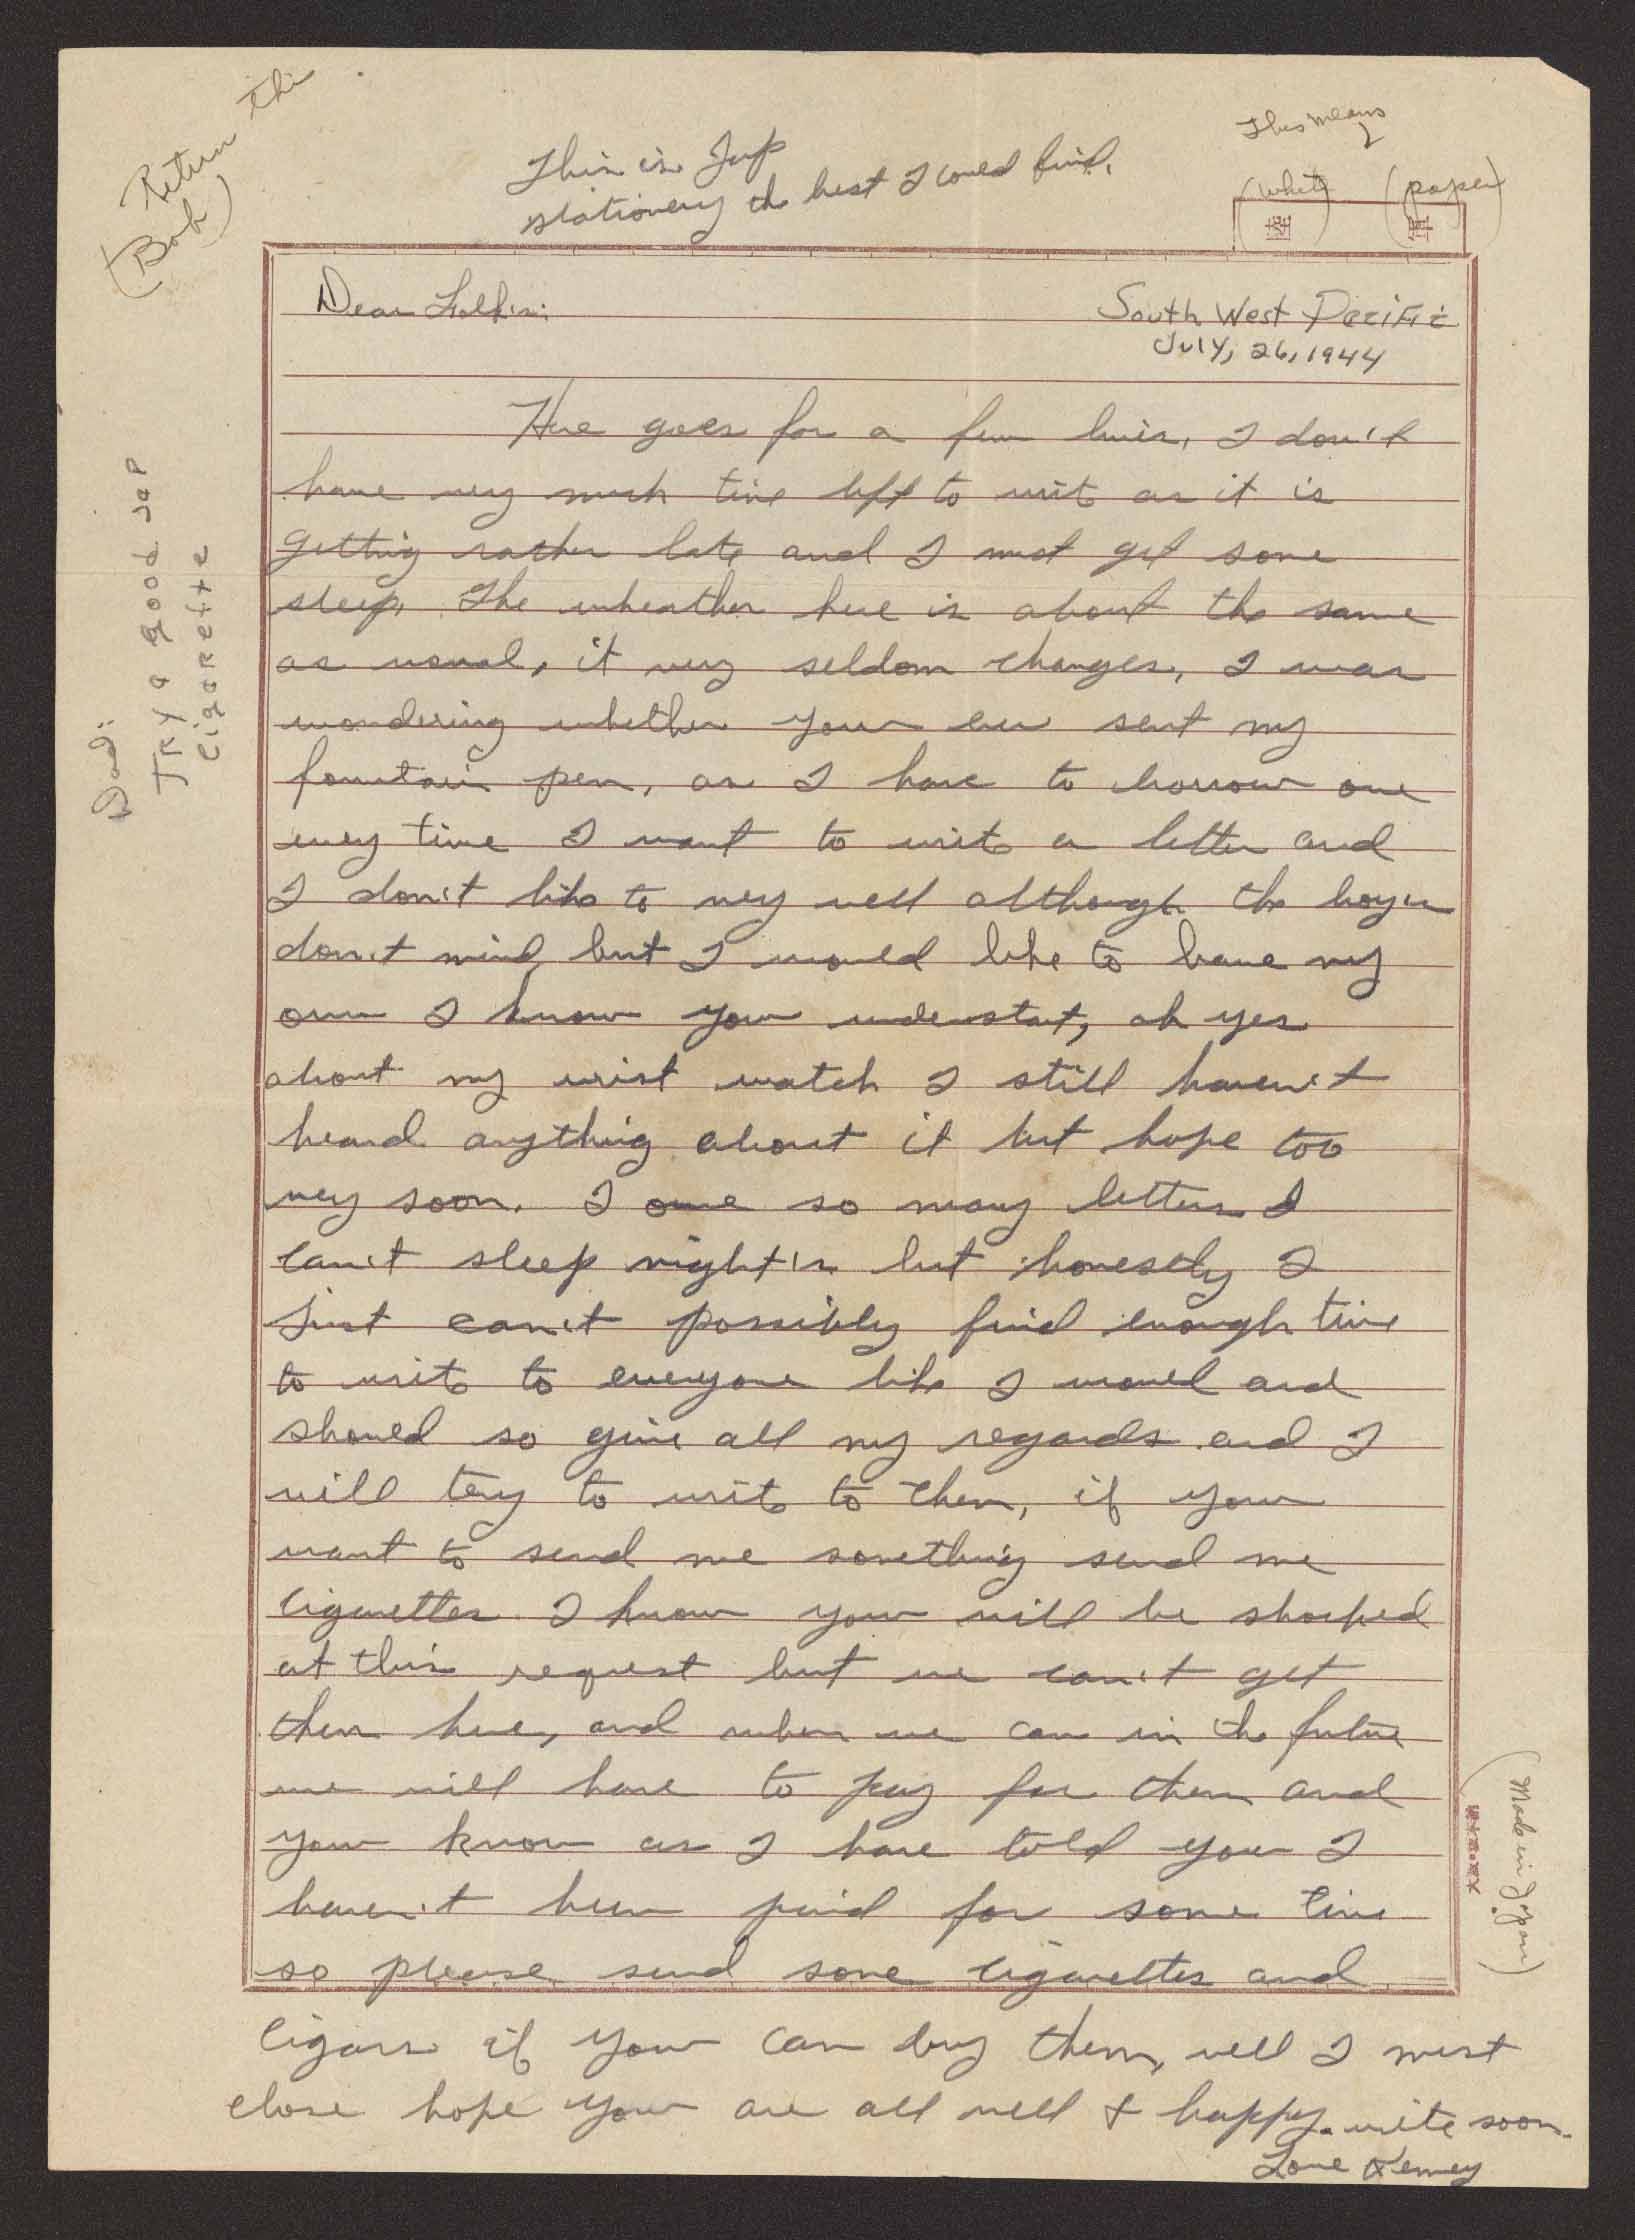 Return this
(Bob)
This is Jap
stationery the best I could find.
This means
(white) (paper)
Dear Folks:
South West Pacific
July, 26, 1944
Here goes for a few lines, I don't
have very much time left to write as it is
getting rather late and I must get some
sleep. The wheather here is about the same
as usual, it very seldom changes. I was
wondering whether you ever sent my
fountain pen, as I have to borrow one
every time I want to write a letter and
I don't like to very well although the boys
don't mind but I would like to have my
own I know you understat, oh yes
about my wrist watch I still haven't
heard anything about it but hope too
very soon. I owe so many letters I
can't sleep night's but honestly I
just can't possibly find enough time
to write to everyone like I would and
should so give all my regards and I
will try to write to them, if you
want to send me something send me
cigarettes I know you will be shocked
at this request but we can't get
them here, and when we can in the future
we will have to pay for them and
you know as I have told you I
haven't been paid for some time
so please send some cigarettes and
cigars if you can buy them, well I must
close hope you are all well & happy. write soon.
Love
Dad:
TRY a good Jap
cigarette
(Made in Japan)